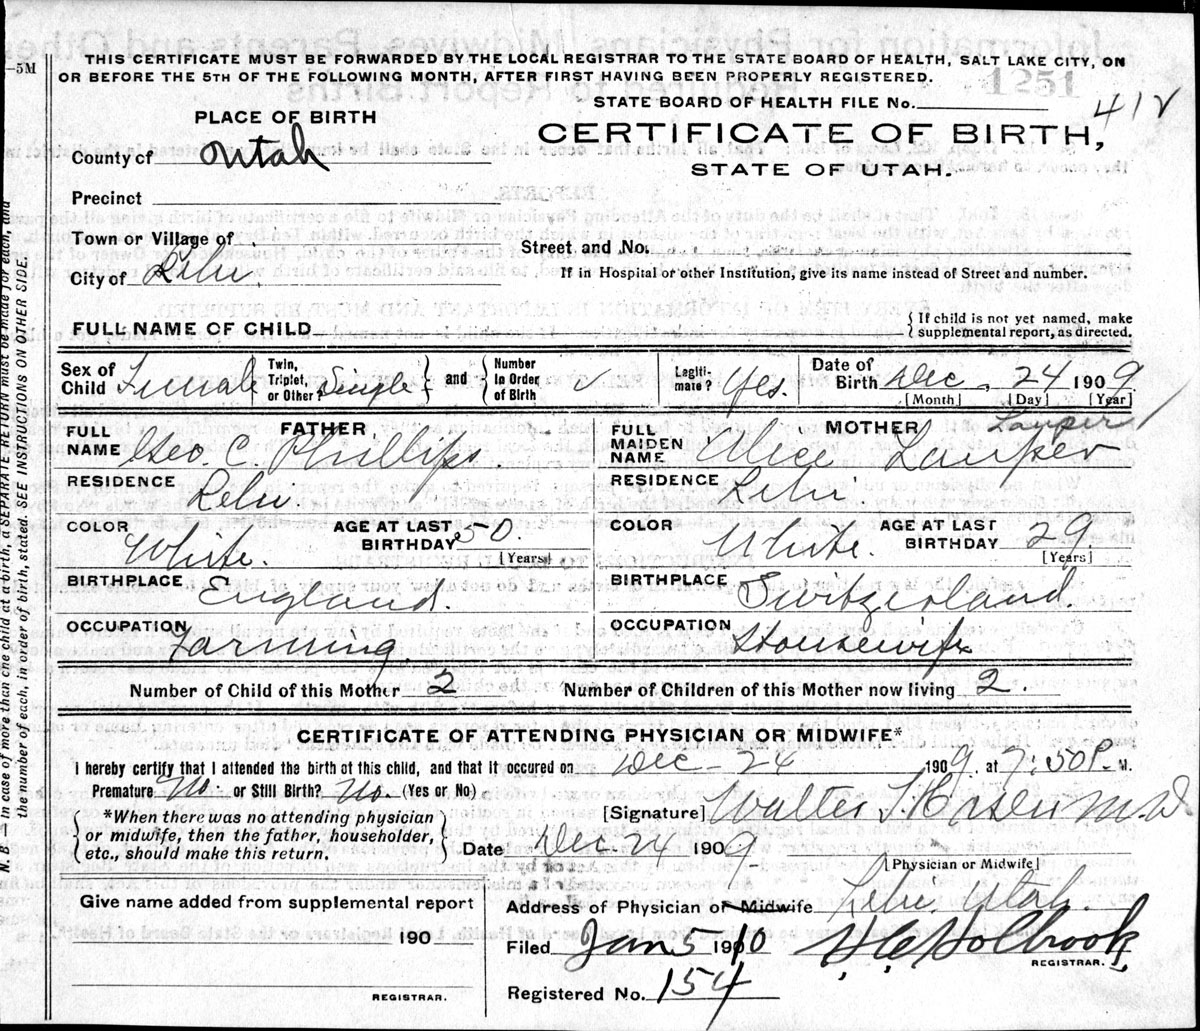 -5M
THIS CERTIFICATE MUST BE FORWARDED BY THE LOCAL REGISTRAR TO THE STATE BOARD OF HEALTH, SALT LAKE CITY, ON
OR BEFORE THE 5TH OF THE FOLLOWING MONTH, AFTER FIRST HAVING BEEN PROPERLY REGISTERED.
STATE BOARD OF HEALTH FILE No.
412
1251
PLACE OF BIRTH
CERTIFICATE OF BIRTH,
STATE OF UTAH.
County of Utah
Precinct
Town or Village of
City of Lehi.
Street and No.
If in Hospital or other Institution, give its name instead of Street and number.
FULL NAME OF CHILD
{If child is not yet named, make supplemental report, as directed.
Sex of Child Female
Twin, Triplet, or Other? Single } and { Number in Order of Birth
Legitimate? Yes.
Date of Birth Dec. 24 1909
[Month] [Day] [Year]
FATHER
FULL NAME Geo. C. Phillips.
RESIDENCE Lehi.
COLOR White.
AGE AT LAST BIRTHDAY 50.
[Years]
BIRTHPLACE England.
OCCUPATION Farming.
MOTHER
Lauper
FULL MAIDEN NAME Alice Lauper
RESIDENCE Lehi.
COLOR White.
AGE AT LAST BIRTHDAY 29
[Years]
BIRTHPLACE Switzerland.
OCCUPATION Housewife
Number of Child of this Mother 2
Number of Children of this Mother now living 2.
CERTIFICATE OF ATTENDING PHYSICIAN OR MIDWIFE*
I hereby certify that I attended the birth of this child, and that it occured on Dec - 24 1909. at 7:50 P. M.
Premature No. or Still Birth? No. (Yes or No)
{*When there was no attending physician or midwife, then the father, householder, etc., should make this return.}
[Signature] Walter T. Hasler M.D.
Date Dec. 24 1909.
[Physician or Midwife]
Give name added from supplemental report
190
REGISTRAR.
Address of Physician or Midwife Lehi. Utah.
Filed Jan 5 1910 H C Holbrook
REGISTRAR.
Registered No. 154
N. B.—In case of more than one child at a birth, a SEPARATE RETURN must be made for each, and
the number of each, in order of birth, stated. SEE INSTRUCTIONS ON OTHER SIDE.